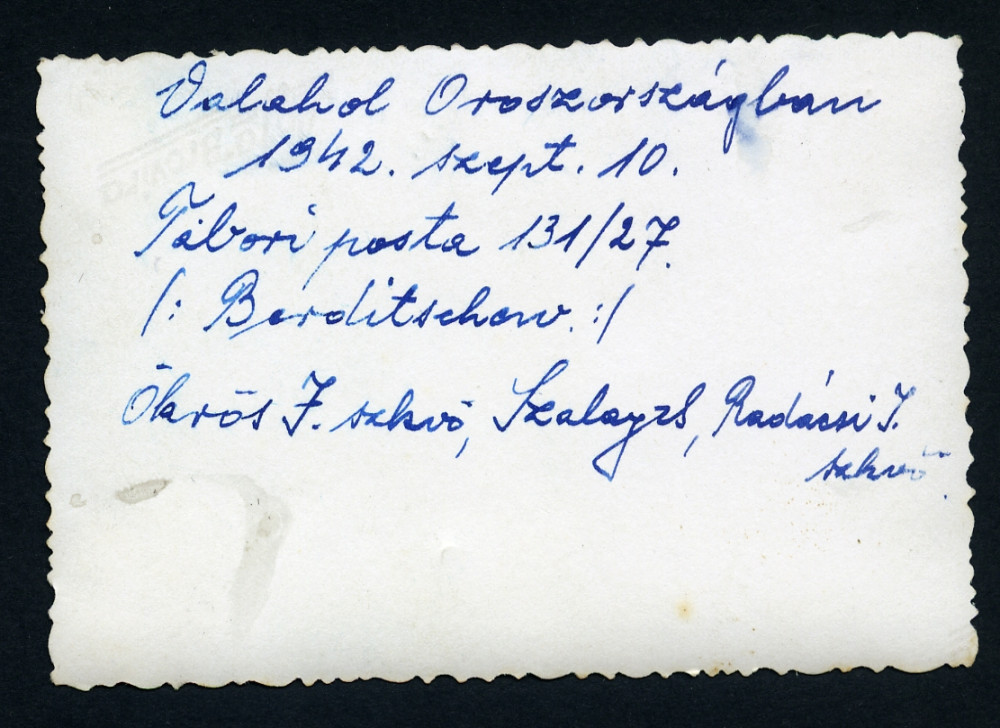 Valahol Oroszországban
1942. szept. 10.
Tábori posta 131/27.
/: Berditschew. :/
Ökrös J. szkvő, Szalay zls, Radácsi J.
szkvő.